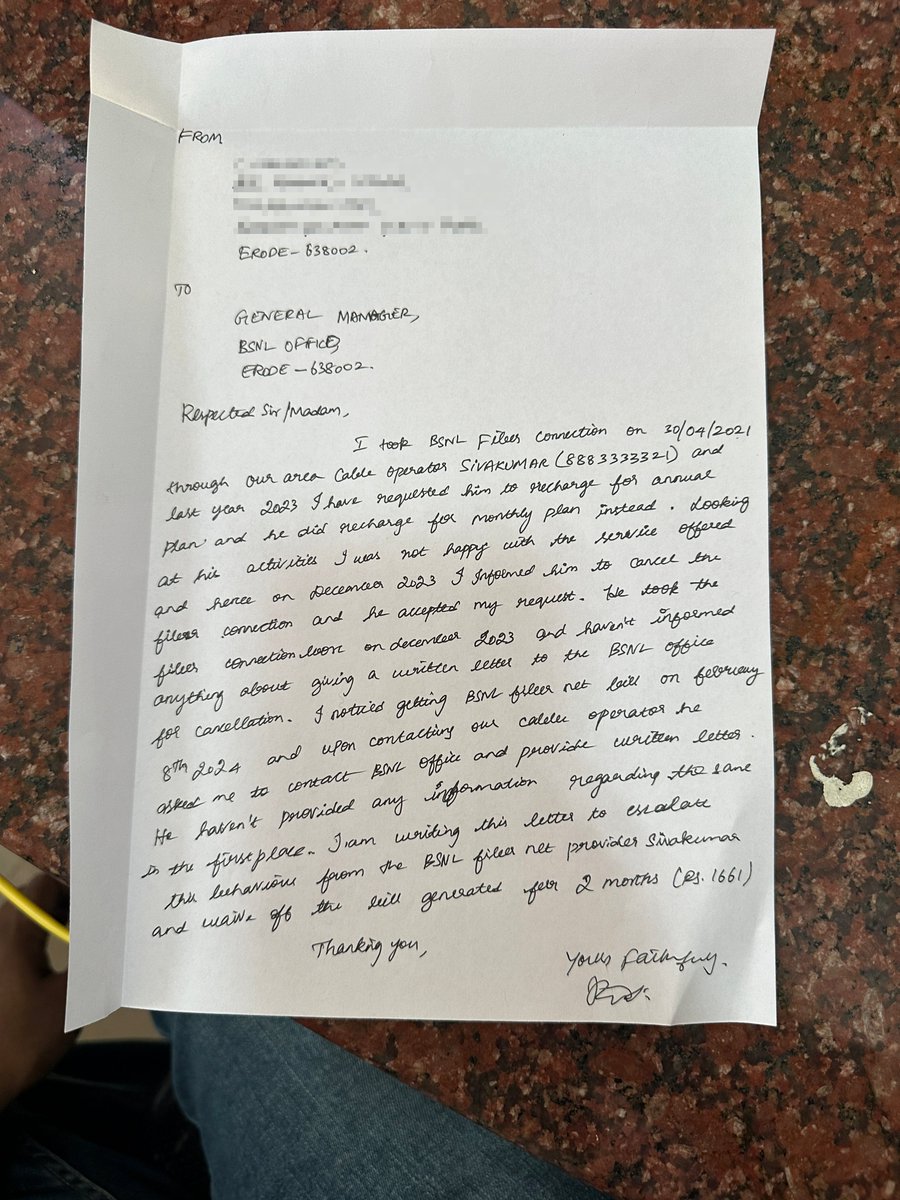 FROM
ERODE-638002.
TO
GENERAL MANAGER,
BSNL OFFICE,
ERODE-638002.
Respected Sir/Madam,
I took BSNL Fiber connection on 30/04/2021
through our area Cable operator SIVAKUMAR (8883333321) and
last year 2023 I have requested him to recharge for annual
plan and he did recharge for monthly plan instead. Looking
at his activities I was not happy with the service offered
and hence on December 2023 I Informed him to cancel the
fiber connection and he accepted my request. He took the
fiber connection on december 2023 and haven't informed
anything about giving a written letter to the BSNL office
for cancellation. I noticed getting BSNL fiber net bill on february
8th 2024 and upon contacting our cable operator he
asked me to contact BSNL office and provide written letter.
He haven't provided any information regarding the same
in the first place. I am writing this letter to escalate
this behaviour from the BSNL fiber net provider Sivakumar
and waive off the bill generated for 2 months (Rs. 1661)
Thanking you,
Yours Faithfully.